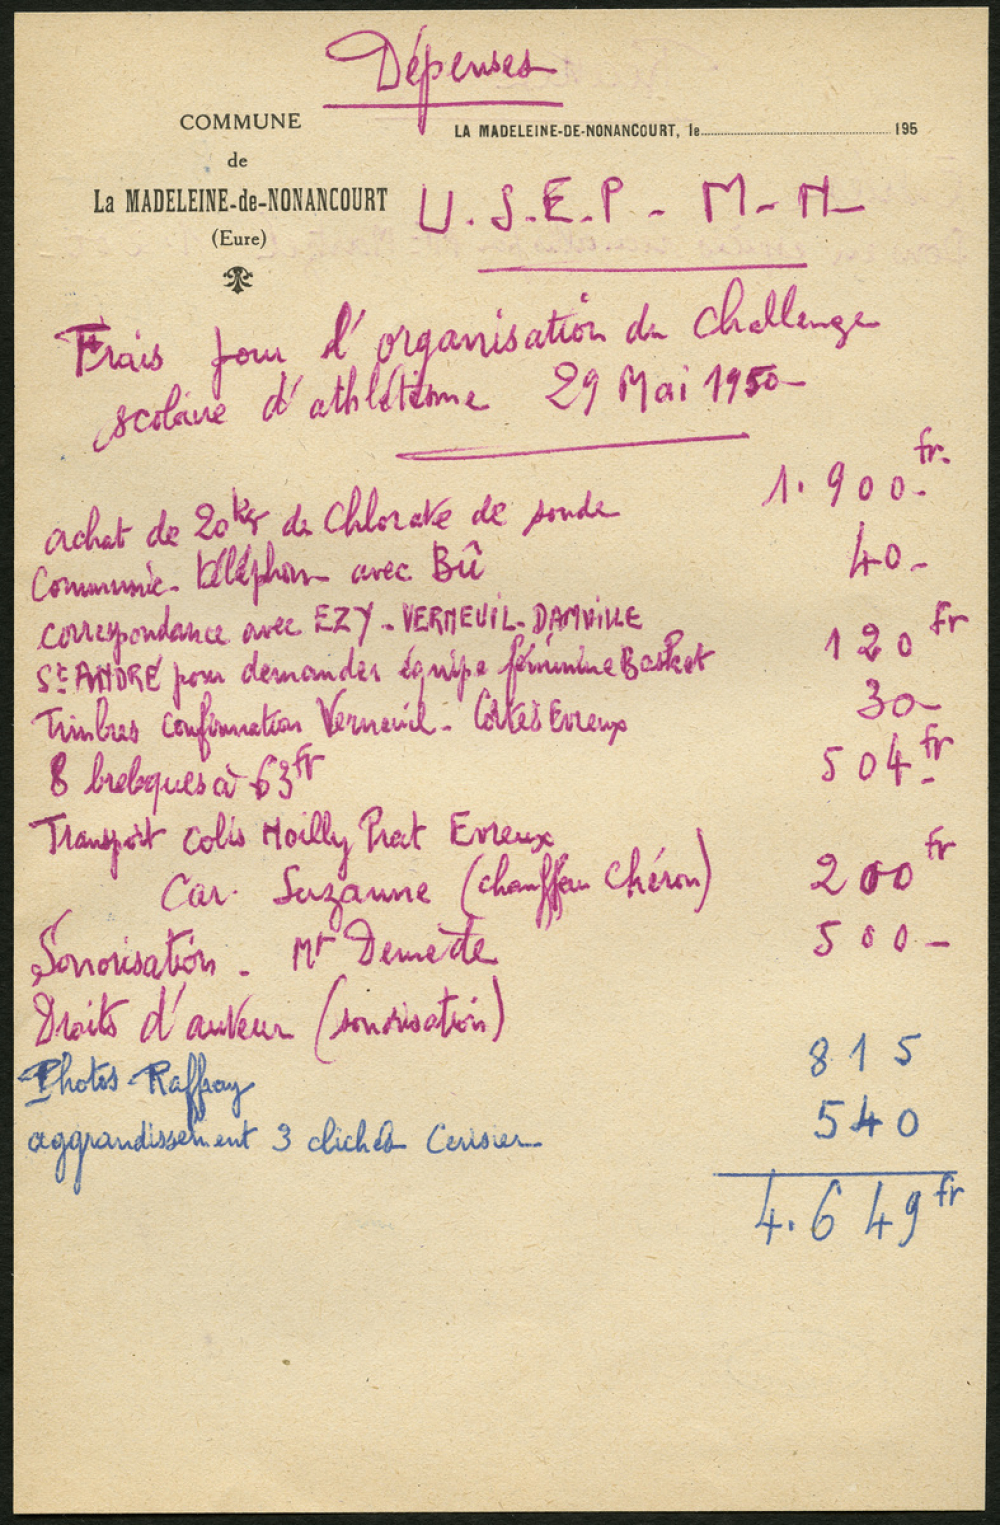 Dépenses
COMMUNE
de
La MADELEINE-de-NONANCOURT
(Eure)
LA MADELEINE-DE-NONANCOURT, le 195
U.S.E.P. - M-N
Frais pour l'organisation du Challenge
scolaire d'athlétisme 29 Mai 1950
achat de 20 kgr de Chlorate de soude 1.900 fr.
Communic. téléphon avec Bû 40 -
correspondance avec EZY - VERNEUIL - DAMVILLE
St ANDRÉ pour demander équipe féminine Basket 120 fr
Timbres confirmation Verneuil - Evreux 30 -
8 à 63 fr 504 fr
Transport colis Noilly Prat Evreux
Car Suzanne (chauffeur Chéron) 200 fr
Sonorisation - Mr Demeste 500 -
Droits d'auteur (sonorisation)
Photos Raffray 815
aggrandissement 3 clichés Cerisier 540
4.649 fr